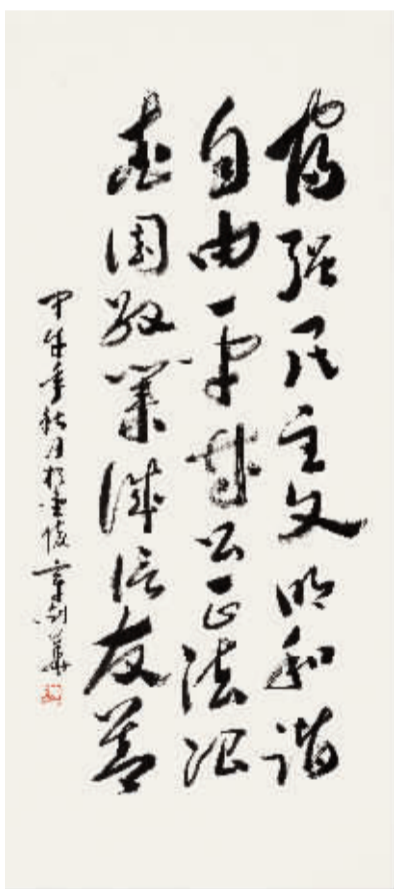 富强民主文明和谐
自由平等公正法治
爱国敬业诚信友善
甲午年秋月於金陵章剑华